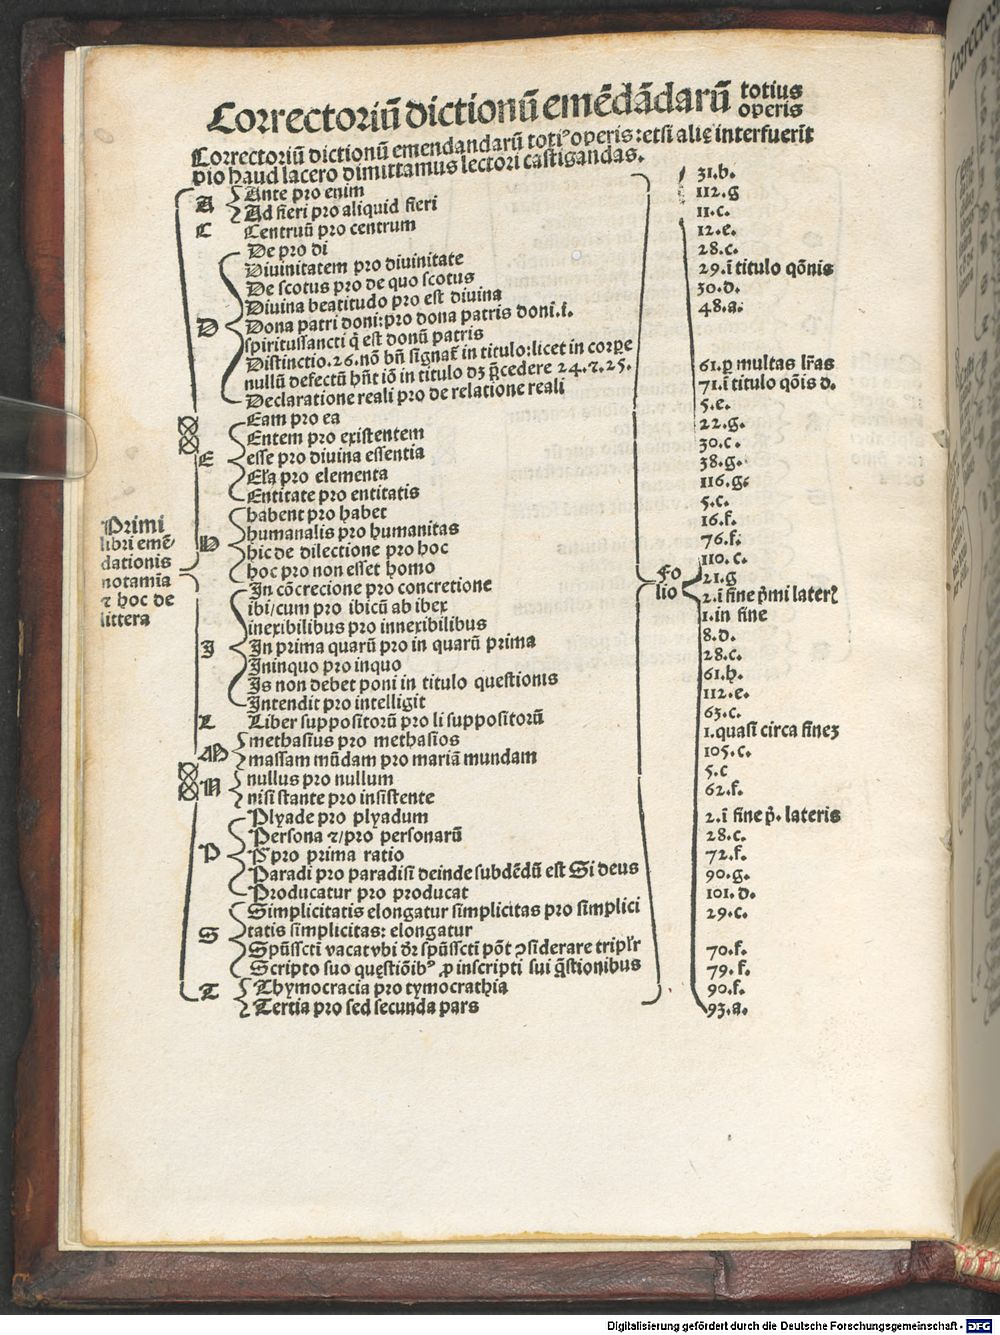 Correctoriũ dictionũ emẽdãdarũ totius
operis
Correctoriũ dictionũ emendandarũ totiꝰ operis: etsi alię interfuerĩt
pio haud lacero dimittamus lectori castigandas.
A Ante pro enim 31.b.
Ad fieri pro aliquid fieri 112.g
C Centruũ pro centrum 11.c.
De pro di 12.e.
Diuinitatem pro diuinitate 28.c.
De scotus pro de quo scotus 29.ĩ titulo qõnis
Diuina beatitudo pro est diuina 30.d.
D Dona patri doni: pro dona patris doni.i. 48.a.
spiritussancti q̃ est donũ patris
Distinctio.26.nõ bñ signat̃ in titulo: licet in corpe
nullũ defectũ hñt iõ in titulo dꝫ p̃cedere 24.⁊.25. 61.ꝑ multas lr̃as
Declaratione reali pro de relatione reali 71.ĩ titulo qõis d.
Eam pro ea 5.e.
Entem pro existentem 22.g.
E esse pro diuina essentia 30.c.
Ela pro elementa 38.g.
Entitate pro entitatis 116.g.
habent pro habet 5.c.
H humanalis pro humanitas 16.f.
hic de dilectione pro hoc 76.f.
hoc pro non esset homo 110.c.
Primi
libri emẽ/
dationis
notamĩa
⁊ hoc de
littera
Fo
lio
In cõcrecione pro concretione 21.g
ibi/cum pro ibicũ ab ibex 2.ĩ fine p̃mi laterꝭ
inexibilibus pro innexibilibus 1.in fine
I In prima quarũ pro in quarũ prima 8.d.
Ininquo pro inquo 28.c.
Is non debet poni in titulo questionis 61.h.
Intendit pro intelligit 112.e.
L Liber suppositorũ pro li suppositorũ 63.c.
M methasius pro methasios 1.quasi circa fineꝫ
massam mũdam pro mariã mundam 105.c.
N nullus pro nullum 5.c
nisi stante pro insistente 62.f.
Plyade pro plyadum 2.ĩ fine p̃. lateris
Persona ⁊/pro personarũ 28.c.
P pro prima ratio 72.f.
Paradi pro paradisi deinde subdẽdũ est Si deus 90.g.
Producatur pro producat 101.d.
Simplicitatis elongatur simplicitas pro simplici 29.c.
S tatis simplicitas: elongatur
Spũssctĩ vacat vbi dr̃ spũssctĩ põt ꝯsiderare triplr̃ 70.f.
Scripto suo quęstiõibꝰ ꝓ inscripti sui q̃stionibus 79.f.
T Thymocracia pro tymocrathia 90.f.
Tertia pro sed secunda pars 93.a.
Digitalisierung gefördert durch die Deutsche Forschungsgemeinschaft - DFG